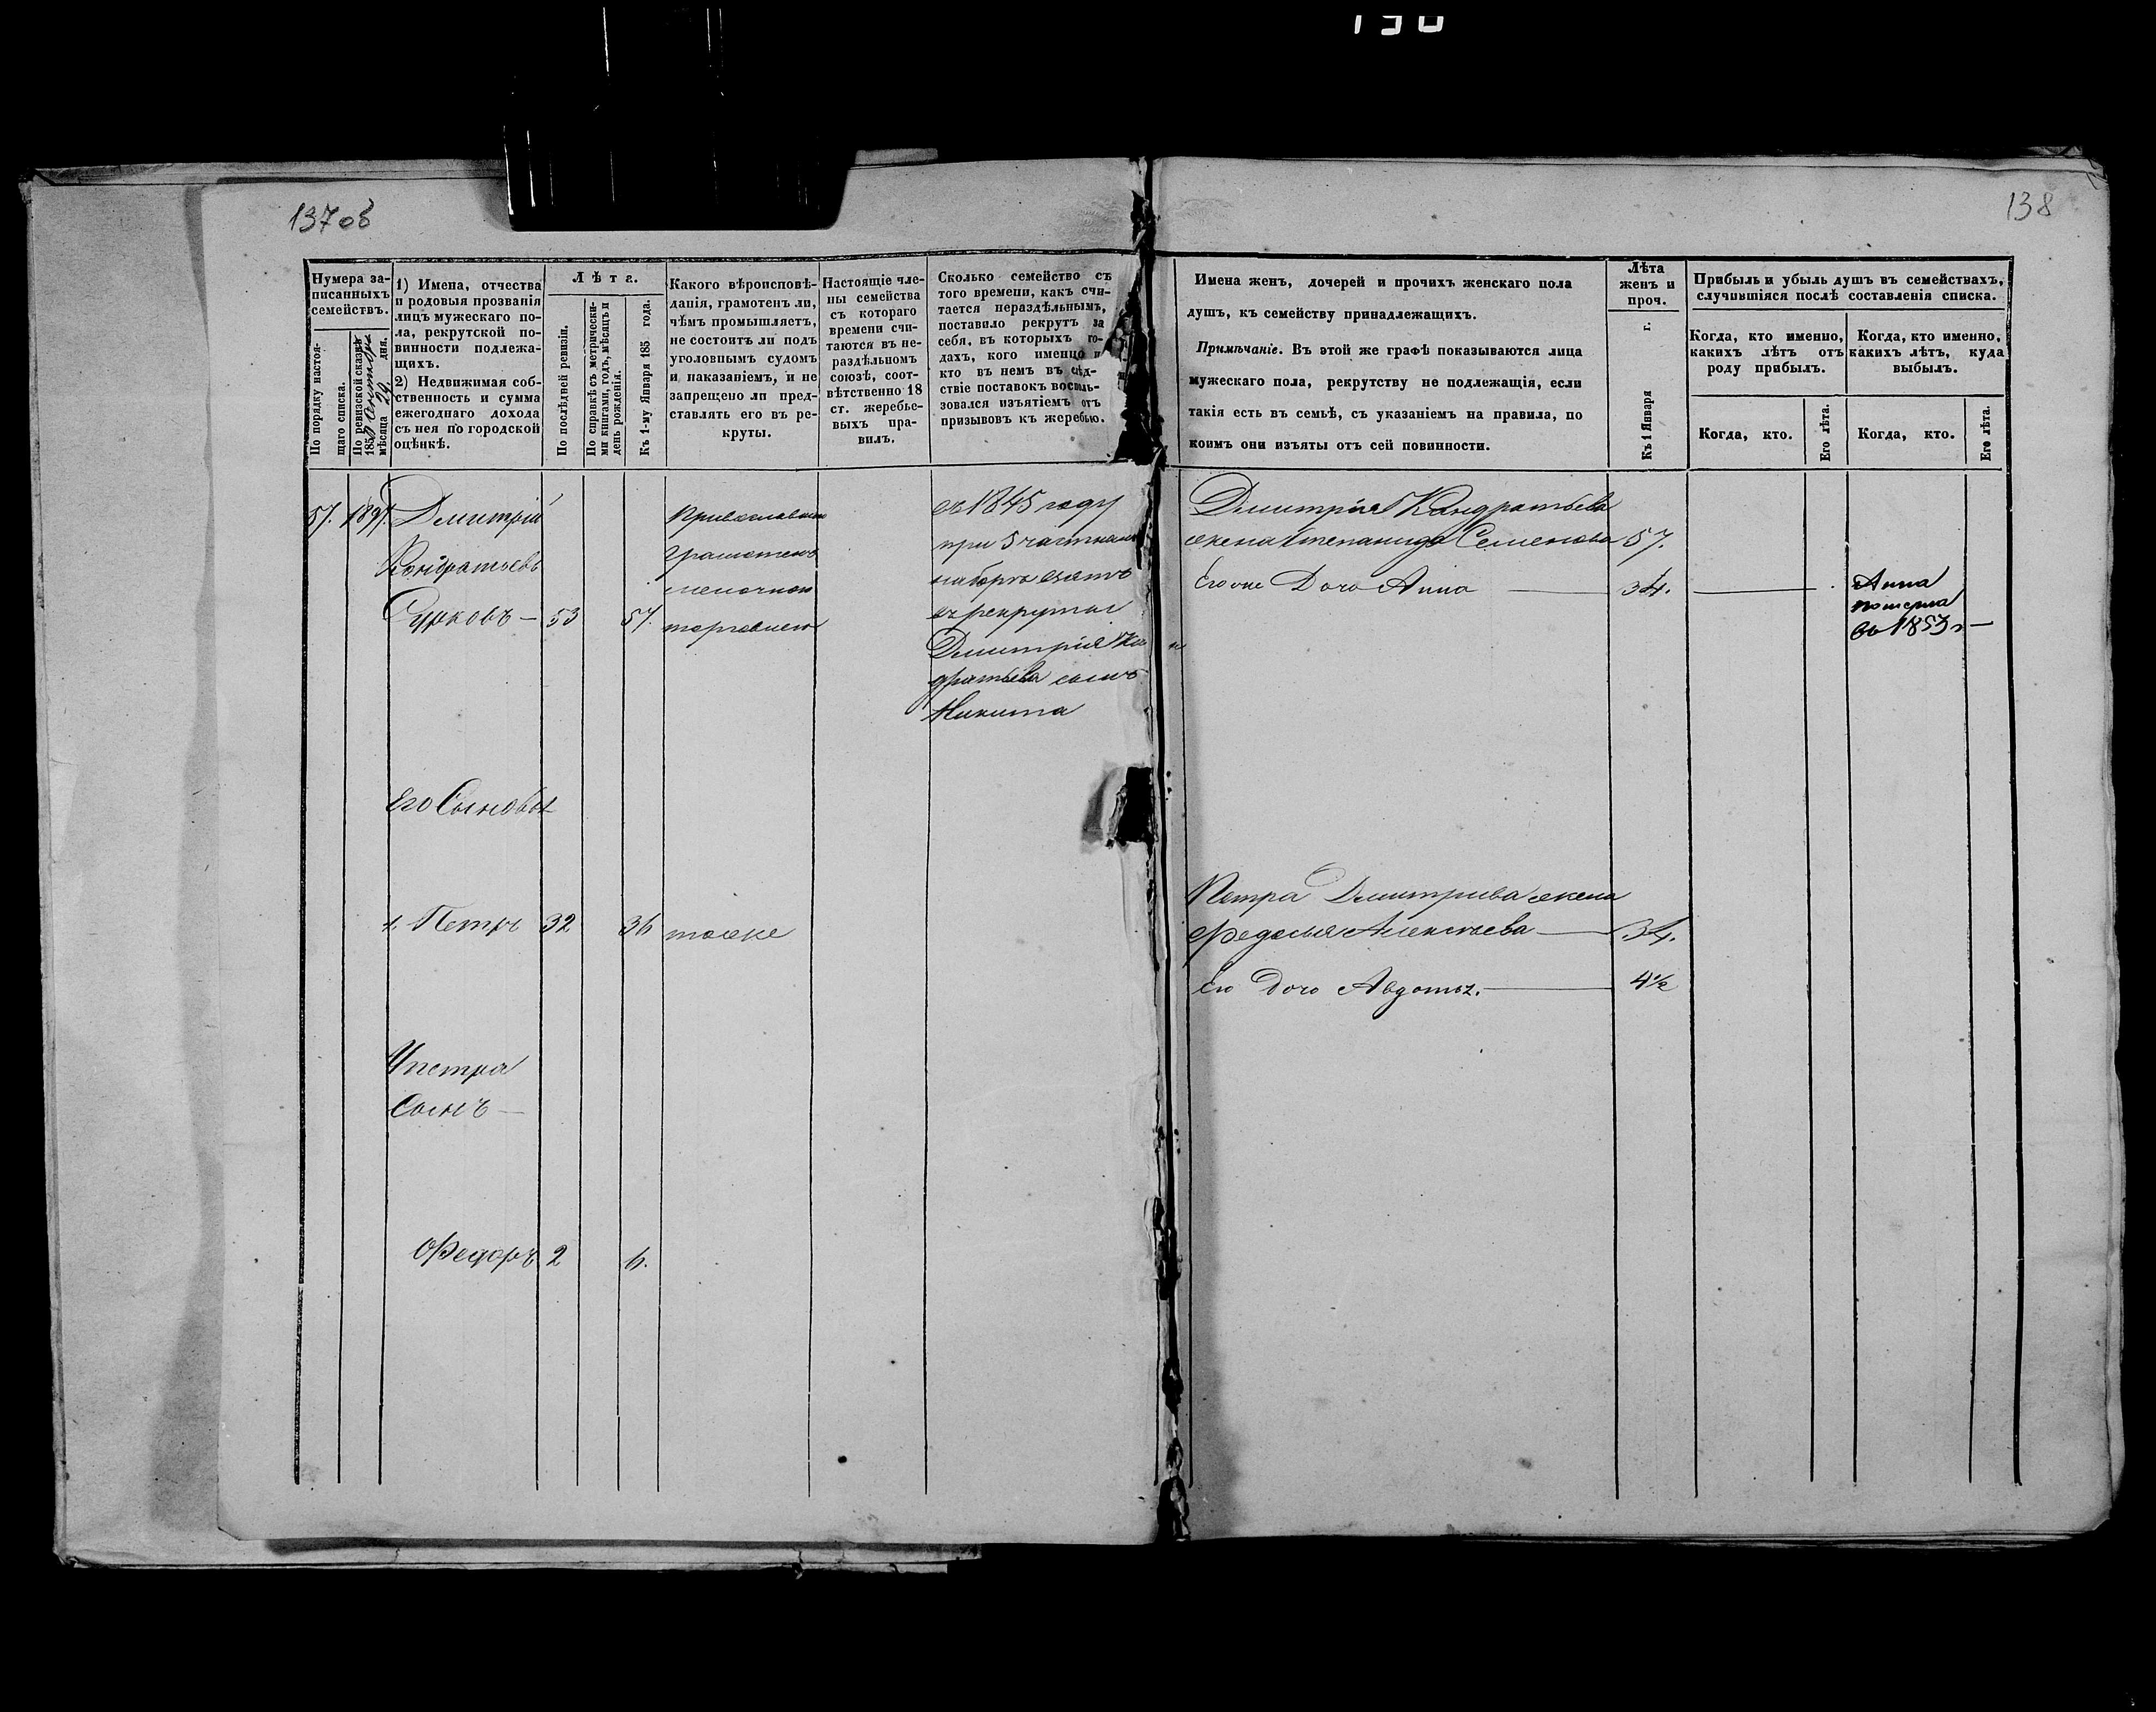 137об
138
Нумера записанныхъ семействъ.
По порядку настоящаго списка.
По ревизской сказкѣ 1850 Сентября мѣсяца 29. дня.
1) Имена, отчества
и родовыя прозванія
лицъ мужескаго по-
ла, рекрутской по-
винности подлежа-
щихъ.
2) Недвижимая соб-
ственность и сумма
ежегоднаго дохода
съ нея по городской
оцѣнкѣ.
Лѣта.
По послѣдней ревизіи.
По справкѣ съ метрически-
ми книгами, годъ, мѣсяцъ и
день рожденія.
Къ 1-му Января 185 года.
Какого вѣроисповѣ-
данія, грамотенъ ли,
чѣмъ промышляетъ,
не состоитъ ли подъ
уголовнымъ судомъ
и наказаніемъ, и не
запрещено ли пред-
ставлять его въ ре-
круты.
Настоящіе чле-
ны семейства
съ котораго
времени счи-
таются въ не-
раздѣльномъ
союзѣ, соот-
вѣтственно 18
ст. жеребье-
выхъ пра-
вилъ.
Сколько семейство съ
того времени, какъ счи-
тается нераздѣльнымъ,
поставило рекрутъ за
себя, въ которыхъ го-
дахъ, кого именно и
кто въ немъ въ слѣд-
ствіе поставокъ восполь-
зовался изъятіемъ отъ
призывовъ къ жеребью.
Имена женъ, дочерей и прочихъ женскаго пола
душъ, къ семейству принадлежащихъ.
Примѣчаніе. Въ этой же графѣ показываются лица
мужескаго пола, рекрутству не подлежащія, если
такія есть въ семьѣ, съ указаніемъ на правила, по
коимъ они изъяты отъ сей повинности.
Лѣта
женъ и
проч.
Къ 1 Января г.
Прибыль и убыль душъ въ семействахъ,
случившіяся послѣ составленія списка.
Когда, кто именно,
какихъ лѣтъ отъ
роду прибылъ.
Когда, кто именно,
какихъ лѣтъ, куда
выбылъ.
Когда, кто.
Его лѣта.
Когда, кто.
Его лѣта.
57. 189. Дмитрій
Кондратьевъ
Сурковъ — 53 57.
Православнаго
грамотенъ
мелочною
торговлею
въ 1845 году
при 5 частномъ
наборѣ взятъ
въ рекруты
Дмитрія Кон
дратьева сынъ
Никита
Дмитрія Кандратьева
жена Степанида Семенова 57.
Его же Дочь Анна — 34.
Анна
померла
въ 1853 г —
Его Сыновья
1. Петръ 32 36 тоже
Петра Дмитріева жена
Федосья Алексѣева — 34.
Его Дочь Авдотья. — 4½
У петра
Сынъ —
Федоръ 2 6.